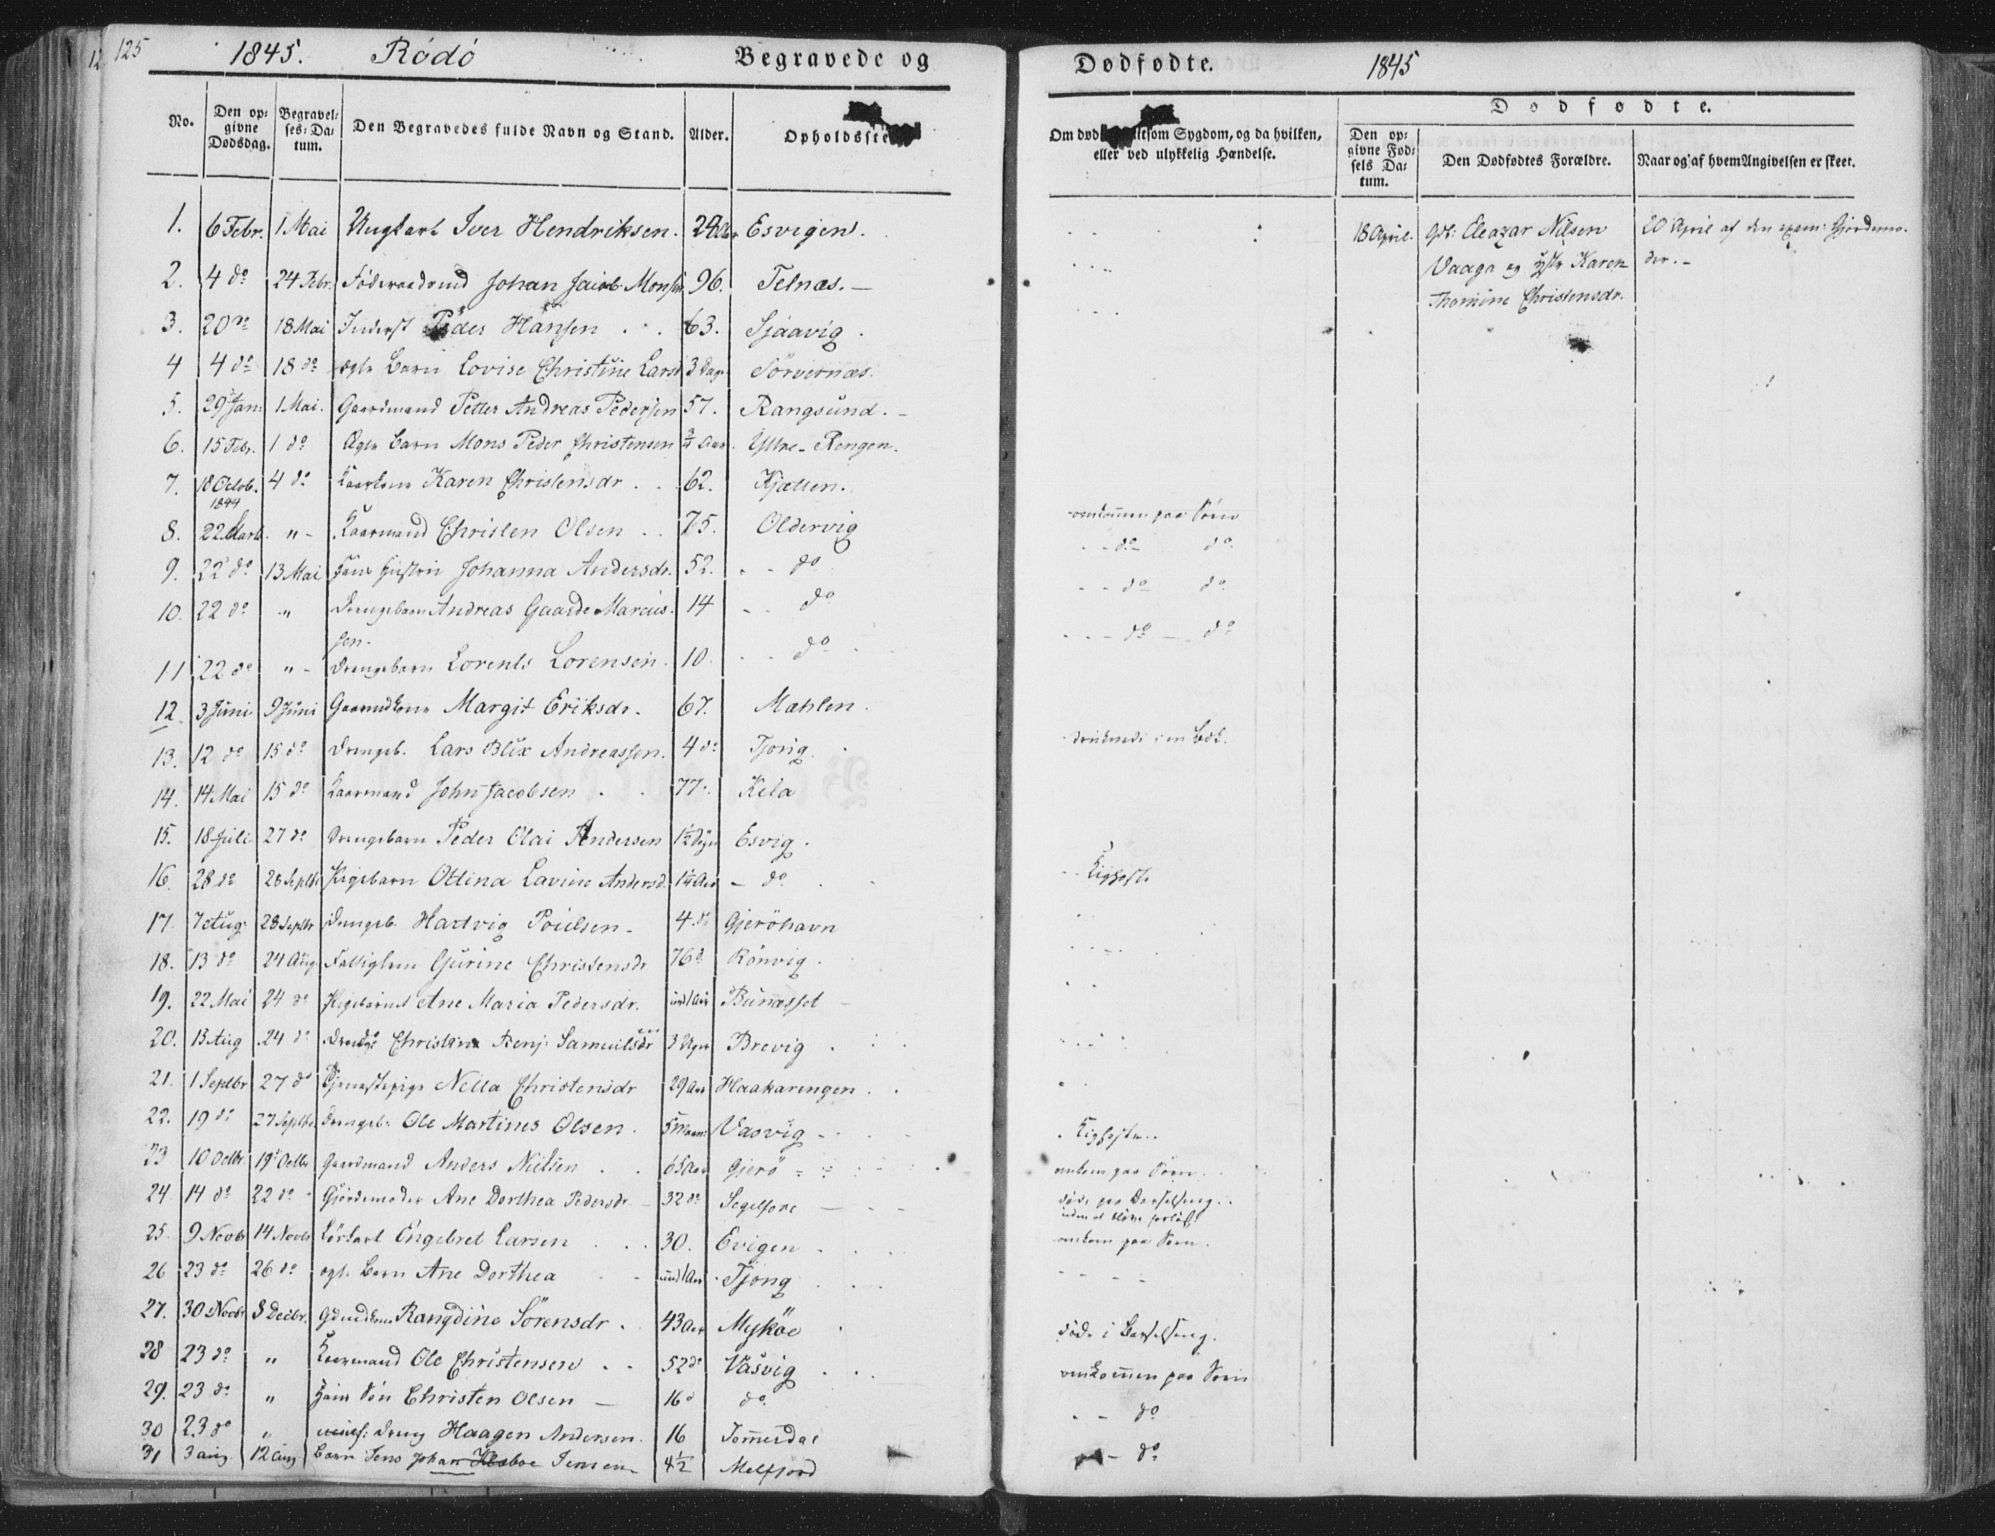 125
1845. Rödö Begravede og
Dødfødte. 1845
No. | Den opgivne Dødsdag. | Begravelses-Datum. | Den Begravedes fulde Navn og Stand. | Alder. | Opholdsste
Om død ltsom Sygdom, og da hvilken, eller ved ulykkelig Hændelse. | Dødfødte. | Den opgivne Fødsels Datum. | Den Dødfødtes Forældre. | Naar og af hvem Angivelsen er skeet.
1. 6 Febr. 1 Mai Ungkarl Iver Hendriksen. Esvigen.
18 April. Eleazar Nilsen 20 April af den exam: Gjordemo-
Vaaga og Karen der.-
Thomine Christensdr.
2. 4 do 24 Febr. Johan Jacob 96. Telnæs.
3. 20 do 18 Mai Inderst Peder Hansen 63. Sjaavig.
4 4 do 18 do Barn Lovise Christine Larsd 3 Dage Sörvernæs.
5. 29 Jan 1 Mai. Gaardmand Petter Andreas Pedersen 57. Rangsund.
6. 15 Febr. 1 do Ægte Barn Mons Peder Christensen 3/4 Aar. Yttre-Rengen.
7. 18 Octob. 1844 4 do Kaarkone Karen Christensdr 62. Kjælten.
8. 22 Marts. " Kaarmand Christen Olsen 75. Oldervig omkommen paa Søen
9. 22 do 13 Mai Hans Hustru Johanna Andersdr. 52. do do do
10. 22 do " Drengebarn Andreas Gaarde Marcus- 14 do do do
sen.
11 22 do " Drengebarn Lorents Lorensen. 10. do do do
12. 3 Juni 9 Juni Margit Eriksdr. 67. Mæhlen.
13. 12 do 15 do Drengeb. Lars Blix Andreassen. 4 do Tjong. druknede i en Bæk.
14. 14 Mai 15 do Kaarmand John Jacobsen 77. Kila
15. 18 Juli 27 do Drengebarn Peder Olai Andersen 1 1/2 Esvig.
16. 28 do 28 Septbr Pigebarn Ottina Lavine Andersd. 1 1/4 Aar do. Kighoste
17. 7 Aug. 28 Septbr Drengeb. Hartvig Poulsen 4 do Gjeröhavn
18. 13 do 24 Aug. Gurine Christensdr 76 d. Rönvig.
19. 22 Mai 24 do Pigebarnet Ane Maria Pedersdr. und 1 Aar Bunæsset
20. 13 Aug 24 do Christine Benj. Samuelsdr 3 Uger Brevig
21. 1 Septbr 27 do Tjenestepige Nella Christensdr 29 Aar Haakaringen
22. 19 do 27 Septbr Drengeb. Ole Martines Olsen. 5 Maan: Vasvig Kighoste.
23 10 Octbr 19 Octbr Gaardmand Anders Nielsen 65 Aar Gjerö omkom paa Søen.
24 14 do 22 do Gjordemoder Ane Dorthea Pedersdr 32 do Segelfore døde paa Barselseng.
uden at blive forløst
25. 9 Novbr 14 Novbr Engebret Larsen 30. Evigen omkom paa Søen.
26 23 do 26 do Barn Ane Dorthea und 1 Aar Tjong
27. 30 Novbr 8 Decbr. Rangdine Sörensdr. 43 Aar Myköe døde i Barselseng.
28 23 do " Kaarmand Ole Christensen 52 do Vasvig omkommen paa Søen
29. 23 do " Hans Søn Christen Olsen 16 d do. do
30 23 do " Dreng Haagen Andersen. 16 Tommerdal
31 3 aug 12 aug Barn Jens Johan Jensen 4 1/2 Melfjord do